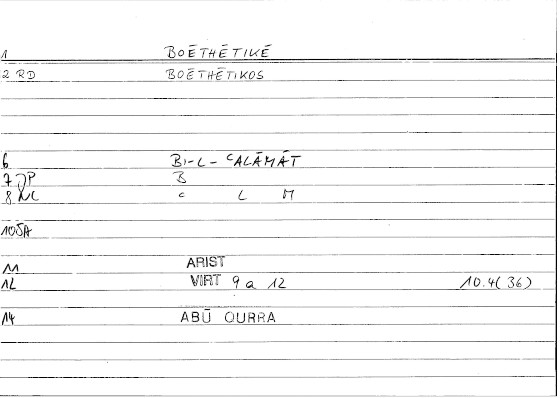 1 BOĒTHĒTIKĒ
2 RD BOĒTHĒTIKOS
6 BI-L-ʿALĀMĀT
7 JP B
8 NL ʿ L M
10 ŠA
11 ARIST
12 VIRT 9 a 12 10.4(36)
14 ABŪ QURRA